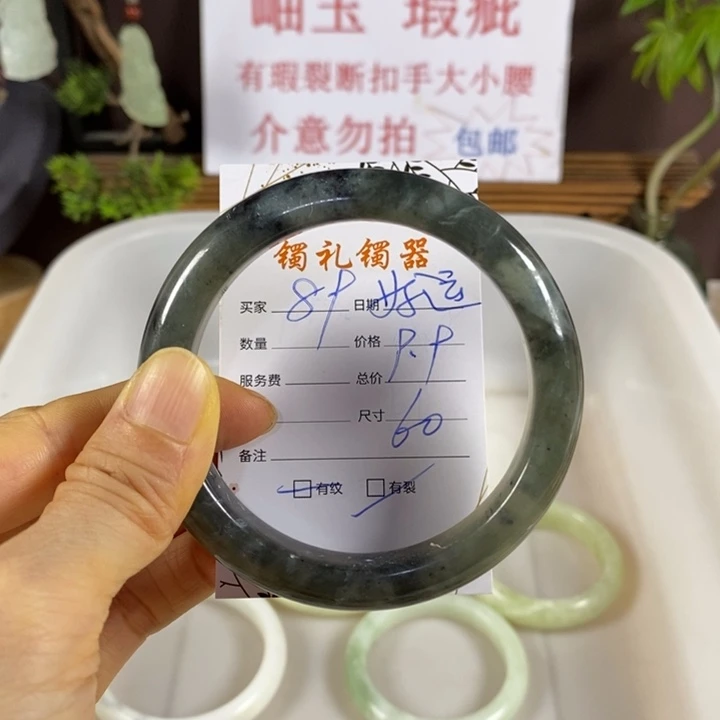 岫玉 瑕疵
有瑕裂断扣手大小腰
介意勿拍 包邮
镯礼镯器
买家 89 日期 好运
数量 价格 9.9
服务费 总价
尺寸 60
备注
有纹 有裂